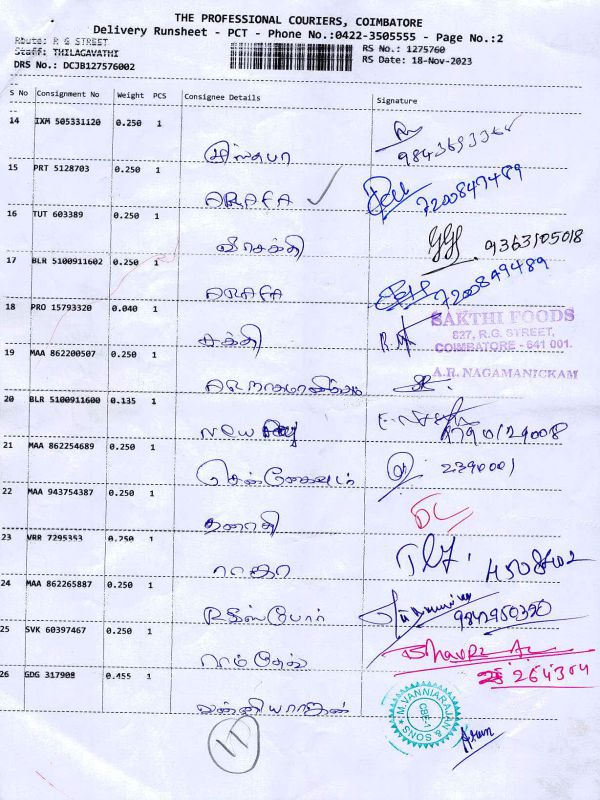 THE PROFESSIONAL COURIERS, COIMBATORE
Delivery Runsheet - PCT - Phone No.:0422-3505555 - Page No.:2
Route: R G STREET
RS No.: 1275760
Staff: THILAGAVATHI
RS Date: 18-Nov-2023
DRS No.: DCJB127576002
S No Consignment No Weight PCS Consignee Details Signature
14 IXM 505331120 0.250 1
15 PRT 5128703 0.250 1
ARAFA
7200847489
16 TUT 603389 0.250 1
9363105018
17 BLR 5100911602 0.250 1
ARAFA
7200849489
18 PRO 15793320 0.040 1
சக்தி
SAKTHI FOODS
827, R.G. STREET,
COIMBATORE - 641 001.
19 MAA 862200507 0.250 1
A.R. NAGAMANICKAM
20 BLR 5100911600 0.135 1
New
21 MAA 862254689 0.250 1
2390001
22 MAA 943754387 0.250 1
DL
23 VRR 7295353 0.250 1
ராஜா
24 MAA 862265887 0.250 1
9842950320
25 SVK 60397467 0.250 1
ராம்தேவ்
264304
26 GDG 317908 0.455 1
வன்னியராஜன்
M.VANNIARAJAN & SONS
CBE-1
Arun
11